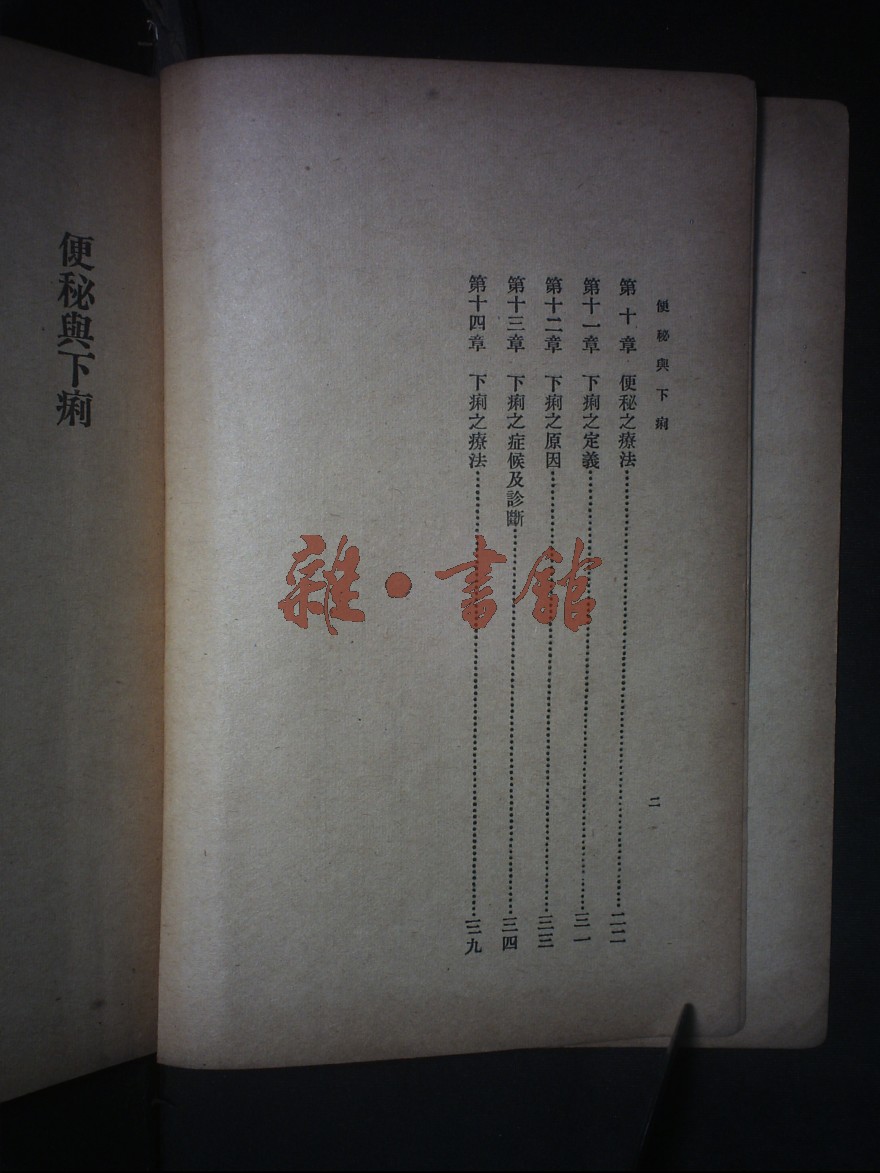 便秘與下痢
二
第十章　便秘之療法……二二
第十一章　下痢之定義……三一
第十二章　下痢之原因……三三
第十三章　下痢之症候及診斷……三四
第十四章　下痢之療法……三九
雜・書館
便秘與下痢